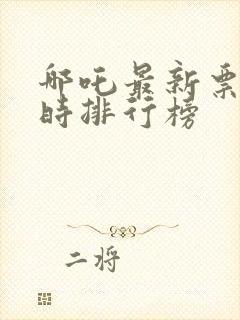 哪吒最新票
时排行榜
二将